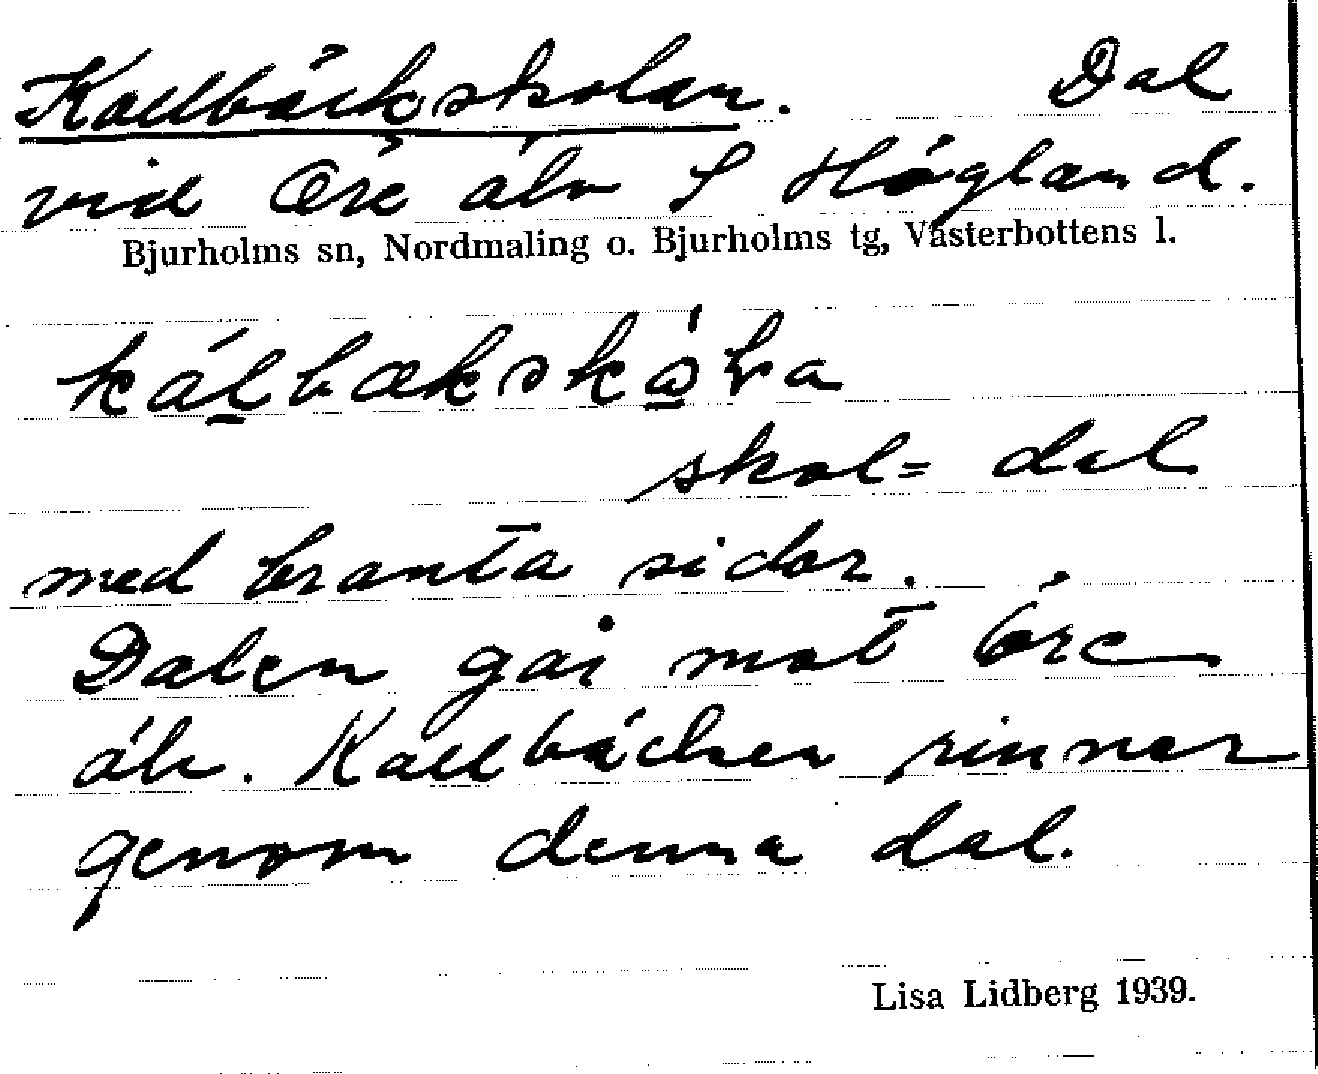 Kallbäckskolan. Dal
vid Öre älv S Högland.
Bjurholms sn, Nordmaling o. Bjurholms tg, Västerbottens l.
skol= dal
med branta sidor.
Dalen går mot Öre
älv. Kallbäcken rinner
genom denna dal.
Lisa Lidberg 1939.